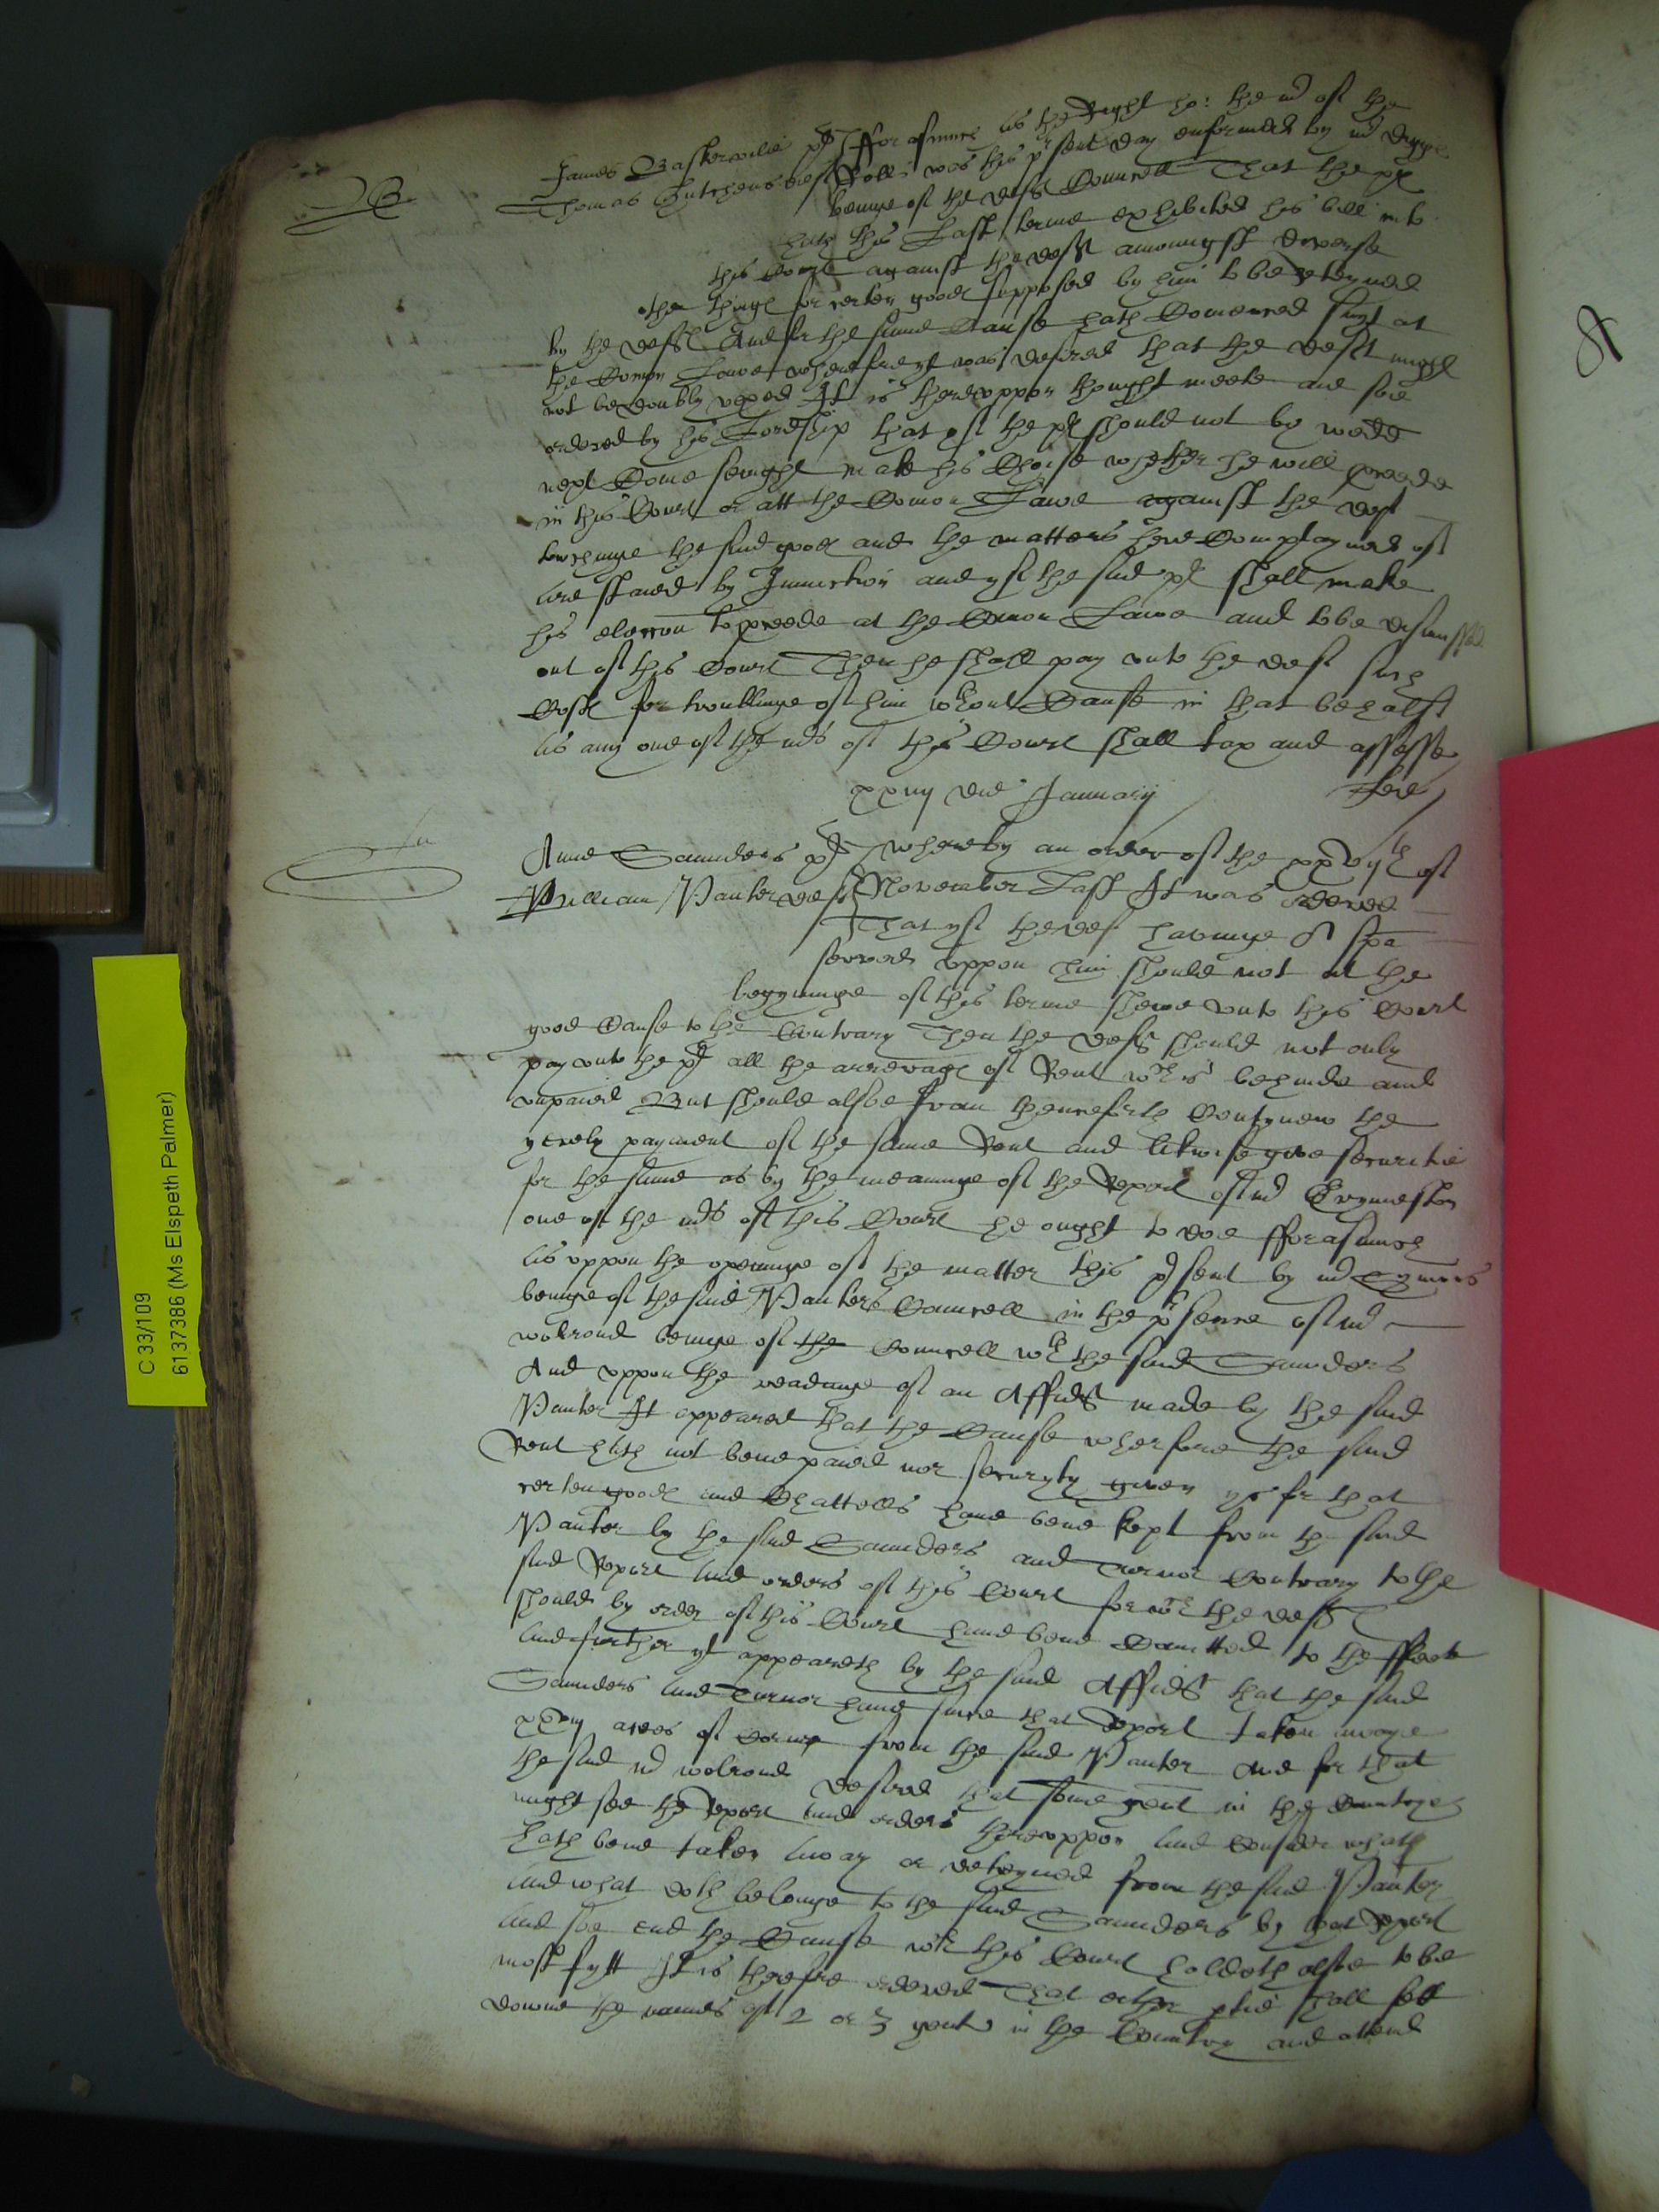 James Baskervile pl fforasmuch as the Right ho: the mr of the
Thomas Hutchens def Rolls was this pr sent day enformed by mr
beinge of the defts Councell That the pl
hath this Last terme exhibited his bill into
this Courte against the deft amongst diverse
other things for certen goods supposed by him to be deteyned
by the deft And for the same Cause hath Comenced suyt at
the Comon Lawe wherefore yt was desired that the deft might
not be doubly vexed It is therevppon thought meete and soe
ordered by his Lordship that yf the pl should not by weds
next Come sevnight make his Choise whether he will procede
in this Court or att the Comon Lawe against the deft
towchinge the said goods and the matters here Complayned of
are stayed by Iniunction and yf the said pl shall make
his eleccon to procede at the Comon Lawe and to be dismissed
out of this Court Then he shall pay vnto the deft such
Costs for troublinge of him wthout Cause in that behalf
as any one of the mrs of this Court shall tax and assesse
xxiiij die January
Anne Saunders pl whereby an order of the xxvijth of
William Panter def November Last It was ordered
That yf the def havinge A spa
served vppon him should not at the
begynninge of this terme shewe vnto this Court
good Cause to the Contrary Then the deft should not only
pay vnto the pl all the arrerages of Rent wch is behinde and
vnpaied But should alsoe from thenceforth Contynew the
yerely payment of the same Rent and likwise give securitie
for the same as by the meaninge of the Report of mr Evymeston
one of the mrs of this Court he ought to doe fforasmuch
as vppon the openinge of the matter this pr sent by mr
beinge of the said Panters Councell in the pr sence of mr
walrond beinge of the Councell wth the said Saunders
And vppon the readinge of an Affidt made by the said
Panter It appeared that the Cause wherfore the said
Rent hath not bene paied nor securyty given ys for that
certen goods and Chattells have bene kept from the said
Panter by the said Saunders and Turnor Contrary to the
said Report and orders of this Court for wch the deft
should by order of this Court have bene Comitted to the ffleete
and further yt appeareth by the said Affidt that the said
Saunders and Turnor have since that Report taken awaye
acres of Corne from the said Panter And for that
the said mr walrond desired that some gent in the Countrye
might see the Report and orders therevppon and Consider what
hath bene taken away or deteyned from the said Panter
and what doth belonge to the said Saunders by that Report
and soe end the Cause wch this Court holdeth alsoe to be
most fytt It is therefore ordered That ether ptie shall sett
downe the names of 2 or 3 gent in the Country and attend
C 33/109
6137386 (Ms Elspeth Palmer)